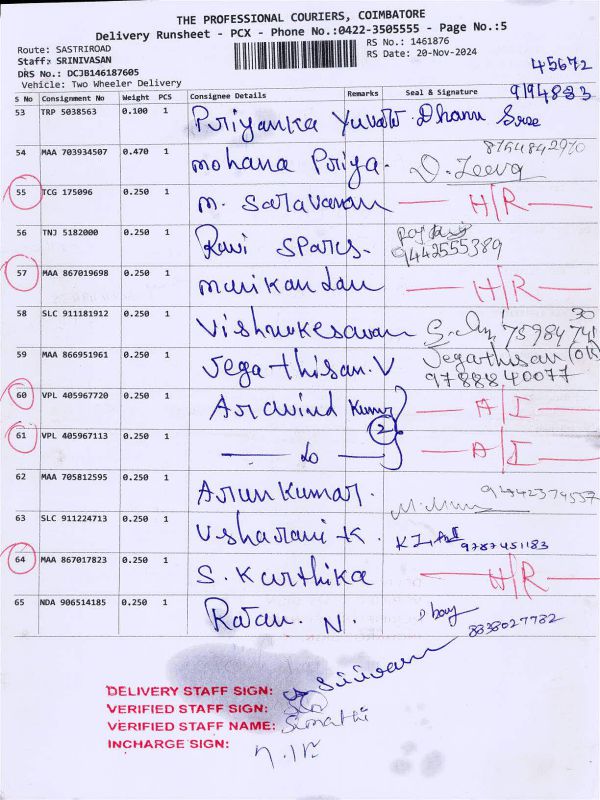 THE PROFESSIONAL COURIERS, COIMBATORE
Delivery Runsheet - PCX - Phone No.:0422-3505555 - Page No.:5
Route: SASTRIROAD RS No.: 1461876
Staff: SRINIVASAN RS Date: 20-Nov-2024 45672
DRS No.: DCJB146187605
Vehicle: Two Wheeler Delivery
S No Consignment No Weight PCS Consignee Details Remarks Seal & Signature 9194883
53 TRP 5038563 0.100 1 Priyanka Yuvate Dhanu
54 MAA 703934507 0.470 1 Mohana Priya.
55 TCG 175096 0.250 1 M. Saravanan H/R
56 TNJ 5182000 0.250 1 Ravi Spares. 9442555389
57 MAA 867019698 0.250 1 Manikandan H/R
58 SLC 911181912 0.250 1 Vishwakesavan 75984 74 30
59 MAA 866951961 0.250 1 Jegathisan.V Jegathisan 97888 40077
60 VPL 405967720 0.250 1 Aravind Kumar A/I
61 VPL 405967113 0.250 1 do 2 A/I
62 MAA 705812595 0.250 1 Arun Kumar.
63 SLC 911224713 0.250 1 Usharani.K. 9787451183
64 MAA 867017823 0.250 1 S. Karthika H/R
65 NDA 906514185 0.250 1 Rajan. N. 8838027732
DELIVERY STAFF SIGN:
VERIFIED STAFF SIGN:
VERIFIED STAFF NAME: Sumathi
INCHARGE SIGN: